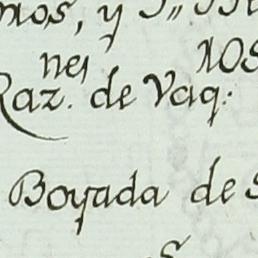 mos, y
nes 108
Raz. de Vaq:
Boyada de S